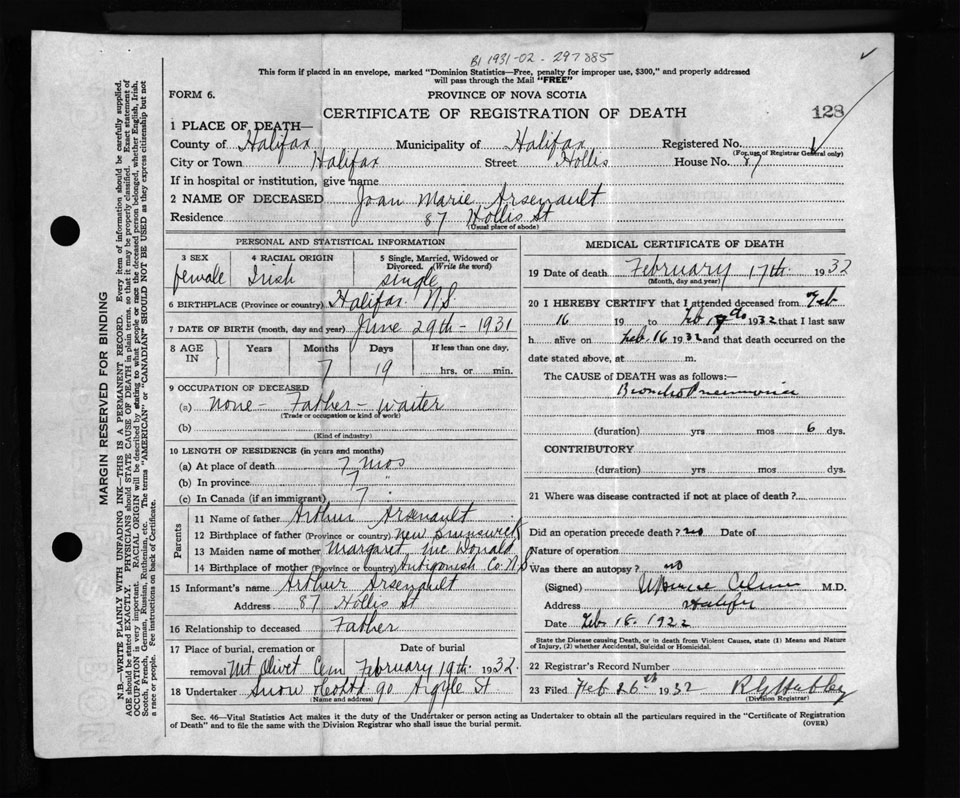 B1 1931-02- 297885
This form if placed in an envelope, marked "Dominion Statistics—Free, penalty for improper use, $300," and properly addressed
will pass through the Mail "FREE"
FORM 6.
PROVINCE OF NOVA SCOTIA
CERTIFICATE OF REGISTRATION OF DEATH
128
1 PLACE OF DEATH—
County of Halifax Municipality of Halifax Registered No.
(For use of Registrar General only)
City or Town Halifax Street Hollis House No. 87
If in hospital or institution, give name
2 NAME OF DECEASED Joan Marie Arsenault
Residence 87 Hollis St
(Usual place of abode)
PERSONAL AND STATISTICAL INFORMATION
3 SEX 4 RACIAL ORIGIN 5 Single, Married, Widowed or
Divorced. (Write the word)
female Irish single
6 BIRTHPLACE (Province or country) Halifax N.S.
7 DATE OF BIRTH (month, day and year) June 29th - 1931
8 AGE IN Years Months Days If less than one day,
7 19 hrs. or min.
9 OCCUPATION OF DECEASED
(a) none - Father - waiter
(Trade or occupation or kind of work)
(b)
(Kind of industry)
10 LENGTH OF RESIDENCE (in years and months)
(a) At place of death 7 mos
(b) In province 7 "
(c) In Canada (if an immigrant) 7 "
Parents
11 Name of father Arthur Arsenault
12 Birthplace of father (Province or country) New Brunswick
13 Maiden name of mother Margaret McDonald
14 Birthplace of mother (Province or country) Antigonish Co. N.S
15 Informant's name Arthur Arsenault
Address 87 Hollis St
16 Relationship to deceased Father
17 Place of burial, cremation or Date of burial
removal Mt Olivet Cem February 19th. 1932.
18 Undertaker Snow & Co Ltd 90 Argyle St
(Name and address)
MEDICAL CERTIFICATE OF DEATH
19 Date of death February 17th. 1932
(Month, day and year)
20 I HEREBY CERTIFY that I attended deceased from Feb
16 19 to Feb 17 1932 that I last saw
h alive on Feb. 16 1932 and that death occurred on the
date stated above, at m.
The CAUSE of DEATH was as follows:—
Broncho Pneumonia
(duration) yrs mos 6 dys.
CONTRIBUTORY
(duration) yrs mos dys.
21 Where was disease contracted if not at place of death?
Did an operation precede death? no Date of
Nature of operation
Was there an autopsy? no
(Signed) M.D.
Address Halifax
Date Feb. 18. 1922
State the Disease causing Death, or in death from Violent Causes, state (1) Means and Nature
of Injury, (2) whether Accidental, Suicidal or Homicidal.
22 Registrar's Record Number
23 Filed Feb 26th 1932
(Division Registrar)
Sec. 46—Vital Statistics Act makes it the duty of the Undertaker or person acting as Undertaker to obtain all the particulars required in the "Certificate of Registration
of Death" and to file the same with the Division Registrar who shall issue the burial permit.
(OVER)
MARGIN RESERVED FOR BINDING
N.B.—WRITE PLAINLY WITH UNFADING INK—THIS IS A PERMANENT RECORD. Every item of information should be carefully supplied.
AGE should be stated EXACTLY. PHYSICIANS should STATE CAUSE OF DEATH in plain terms, so that it may be properly classified. Exact statement of
OCCUPATION is very important. RACIAL ORIGIN will be described by stating to what people or race the deceased person belonged, whether English, Irish,
Scotch, French, German, Russian, Ruthenian, etc. The terms "AMERICAN" or "CANADIAN" SHOULD NOT BE USED as they express citizenship but not
a race or people. Fee instructions on back of Certificate.